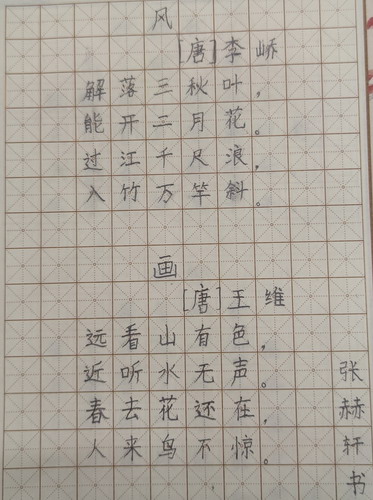 风
[唐]李峤
解落三秋叶，
能开二月花。
过江千尺浪，
入竹万竿斜。
画
[唐]王维
远看山有色，
近听水无声。
春去花还在，
人来鸟不惊。
张赫轩书